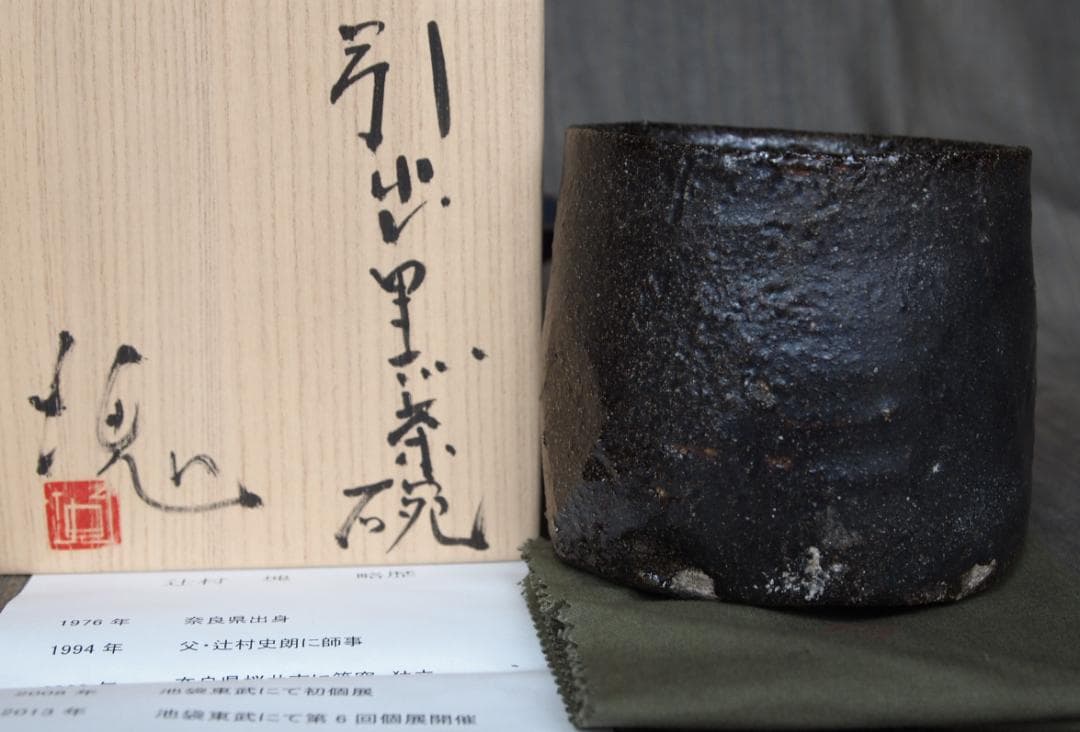 引出黒茶碗
塊
辻村 塊 略歴
1976年 奈良県出身
1994年 父・辻村史朗に師事
2008年 池袋東武にて初個展
2013年 池袋東武にて第6回個展開催